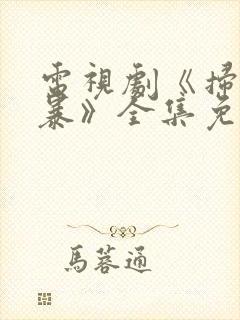 電視劇《掃
暴》全集免
馬蓉通